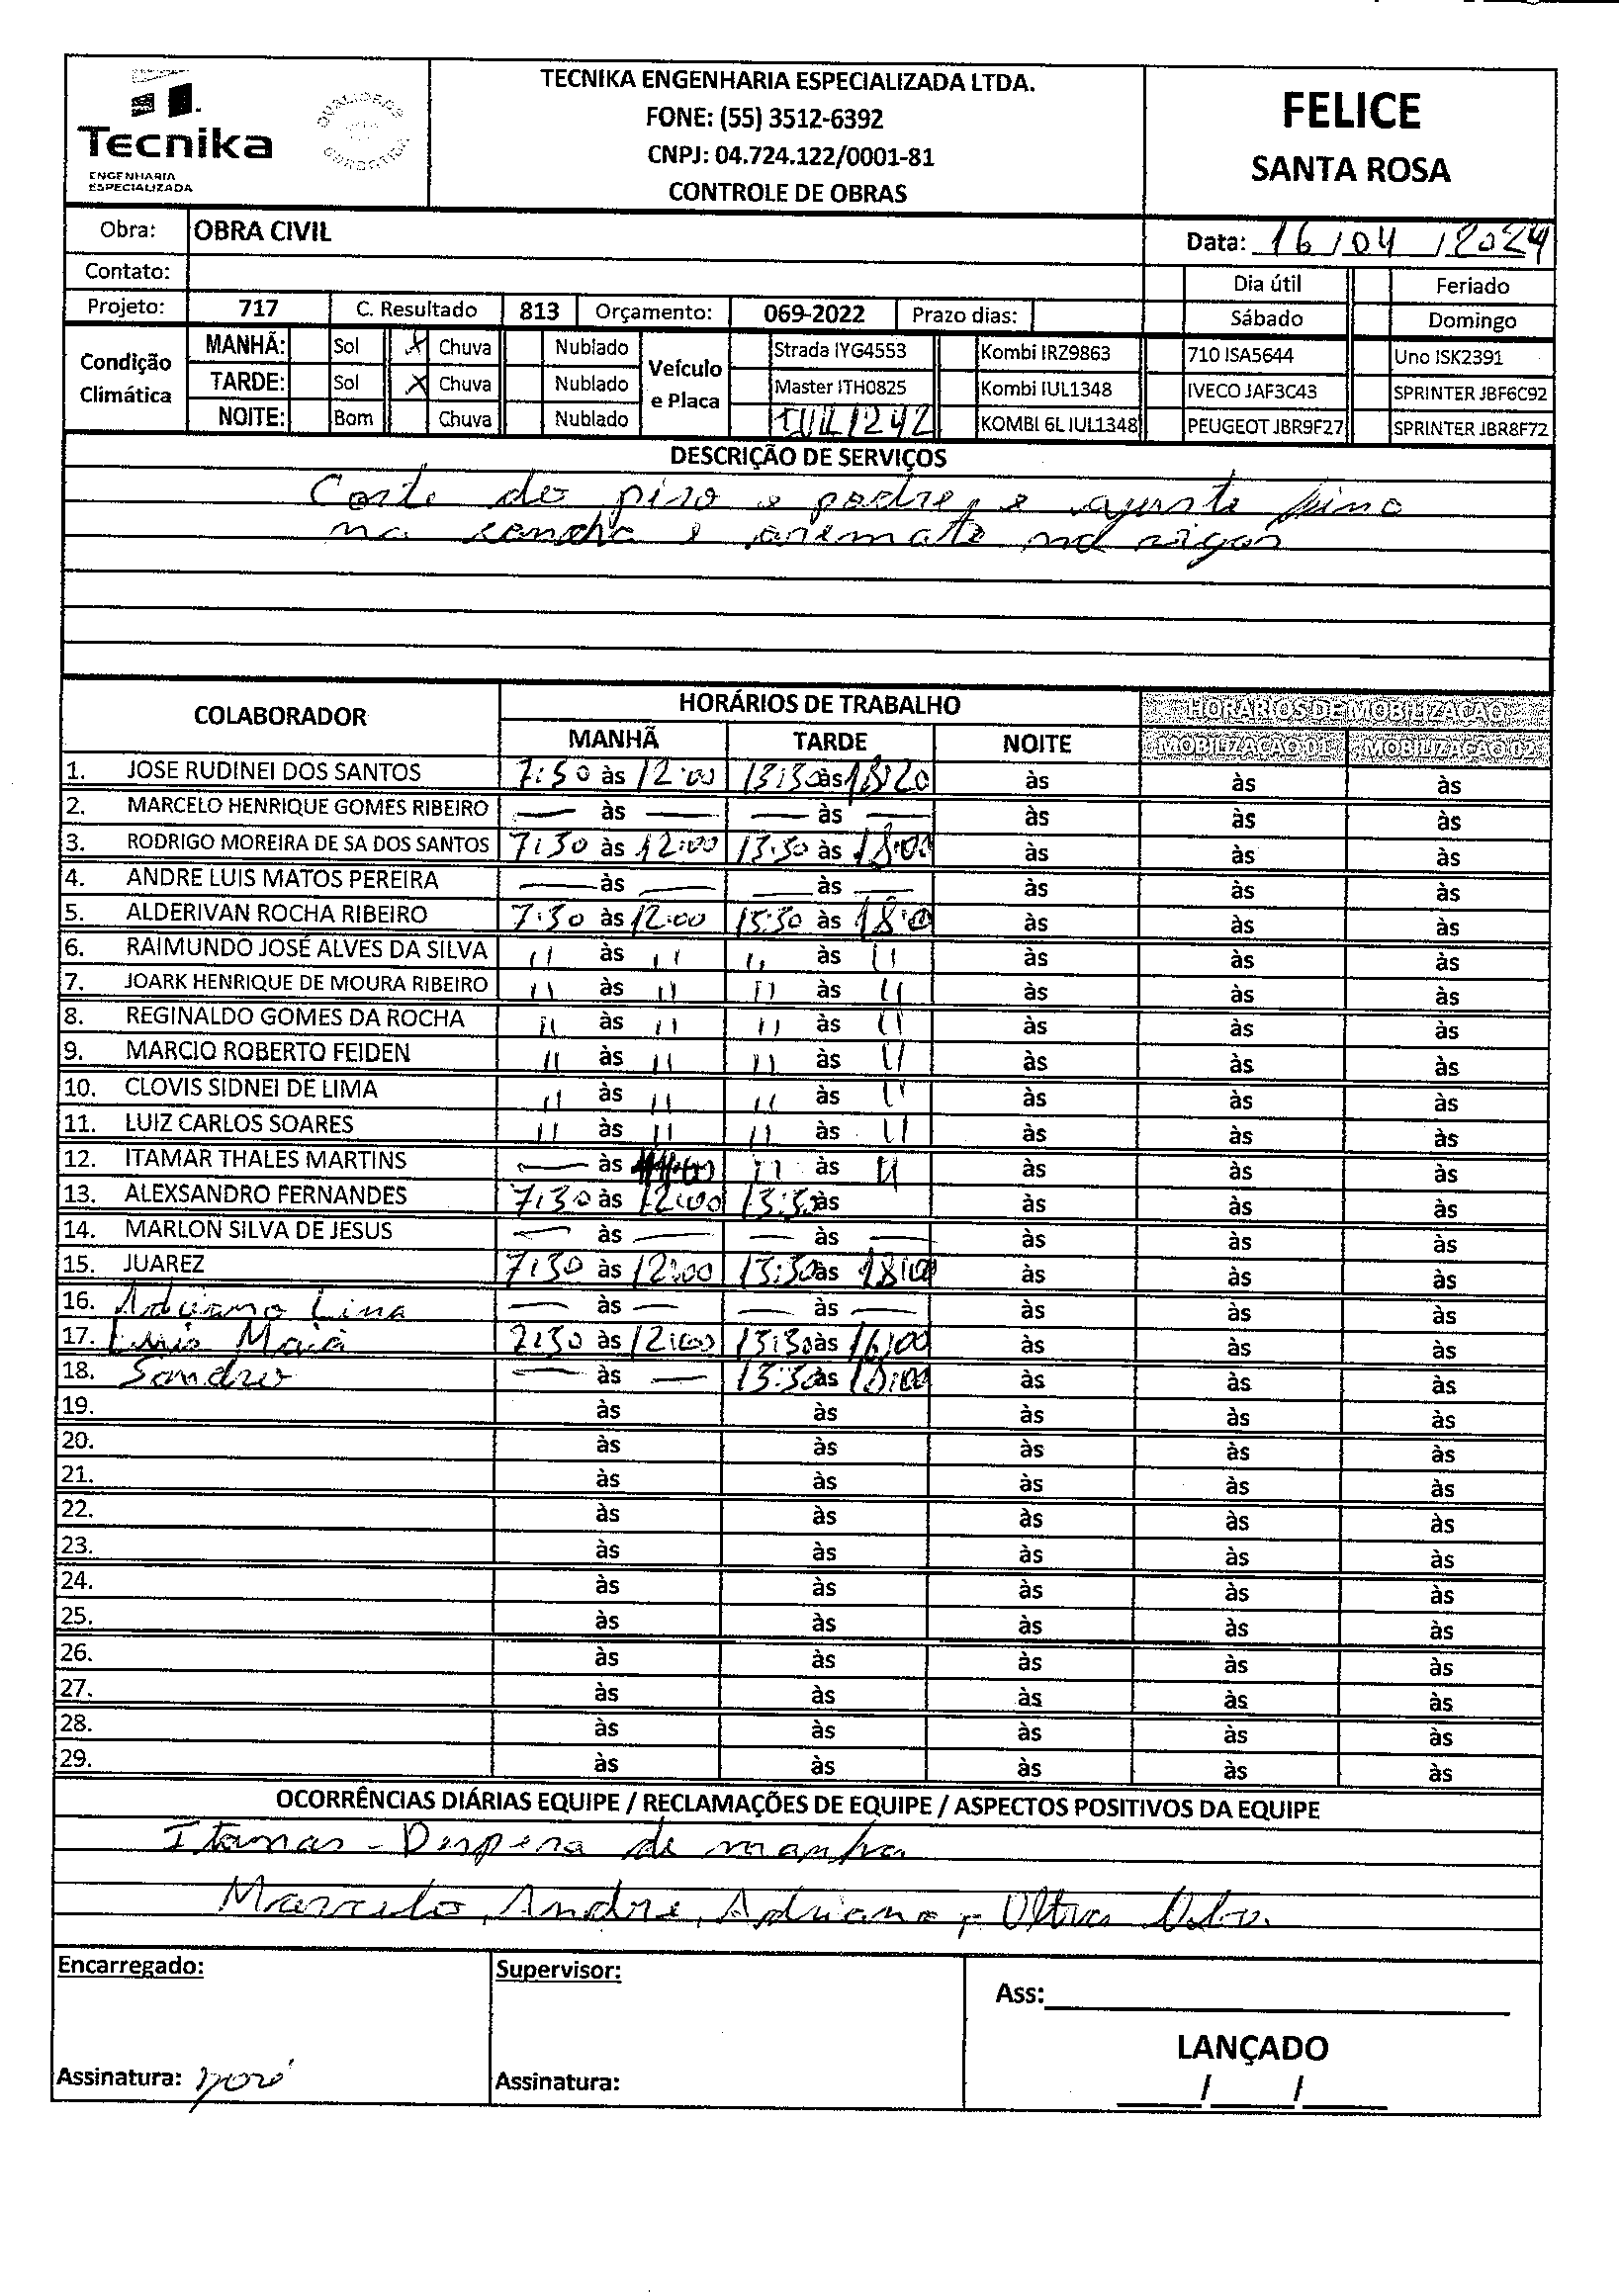 Tecnika
ENGENHARIA
ESPECIALIZADA
TECNIKA ENGENHARIA ESPECIALIZADA LTDA.
FONE: (55) 3512-6392
CNPJ: 04.724.122/0001-81
CONTROLE DE OBRAS
FELICE
SANTA ROSA
Obra: OBRA CIVIL
Data: 16/04/2024
Contato:
Dia útil Feriado
Projeto: 717 C. Resultado 813 Orçamento: 069-2022 Prazo dias: Sábado Domingo
Condição Climática
MANHÃ: Sol X Chuva Nublado
TARDE: Sol X Chuva Nublado
NOITE: Bom Chuva Nublado
Veículo e Placa
Strada IYG4553 Kombi IRZ9863 710 ISA5644 Uno ISK2391
Master ITH0825 Kombi IUL1348 IVECO JAF3C43 SPRINTER JBF6C92
IUL1242 KOMBI 6L IUL1348 PEUGEOT JBR9F27 SPRINTER JBR8F72
DESCRIÇÃO DE SERVIÇOS
Corte de piso e padre, e ajuste fino
na cancha e aremate na vigas
COLABORADOR HORÁRIOS DE TRABALHO HORÁRIOS DE MOBILIZAÇÃO
MANHÃ TARDE NOITE MOBILIZAÇÃO 01 MOBILIZAÇÃO 02
1. JOSE RUDINEI DOS SANTOS 7:30 às 12:00 13:30 às 18:20 às às às
2. MARCELO HENRIQUE GOMES RIBEIRO — às — — às — às às às
3. RODRIGO MOREIRA DE SA DOS SANTOS 7:30 às 12:00 13:30 às 18:00 às às às
4. ANDRE LUIS MATOS PEREIRA — às — — às — às às às
5. ALDERIVAN ROCHA RIBEIRO 7:30 às 12:00 13:30 às 18:00 às às às
6. RAIMUNDO JOSÉ ALVES DA SILVA " às " " às " às às às
7. JOARK HENRIQUE DE MOURA RIBEIRO " às " " às " às às às
8. REGINALDO GOMES DA ROCHA " às " " às " às às às
9. MARCIO ROBERTO FEIDEN " às " " às " às às às
10. CLOVIS SIDNEI DE LIMA " às " " às " às às às
11. LUIZ CARLOS SOARES " às " " às " às às às
12. ITAMAR THALES MARTINS — às " às " às às às
13. ALEXSANDRO FERNANDES 7:30 às 12:00 13:30 às às às às
14. MARLON SILVA DE JESUS — às — — às — às às às
15. JUAREZ 7:30 às 12:00 13:30 às 18:00 às às às
16. Adriano Lima — às — — às — às às às
17. Luis Maia 7:30 às 12:00 13:30 às 16:00 às às às
18. Sandro — às — 13:30 às 18:00 às às às
19. às às às às às
20. às às às às às
21. às às às às às
22. às às às às às
23. às às às às às
24. às às às às às
25. às às às às às
26. às às às às às
27. às às às às às
28. às às às às às
29. às às às às às
OCORRÊNCIAS DIÁRIAS EQUIPE / RECLAMAÇÕES DE EQUIPE / ASPECTOS POSITIVOS DA EQUIPE
Itamar - Dispensa de manha
Marcelo, Andre, Adriano, Oltra
Encarregado: Supervisor: Ass:
LANÇADO
Assinatura: Assinatura: / /